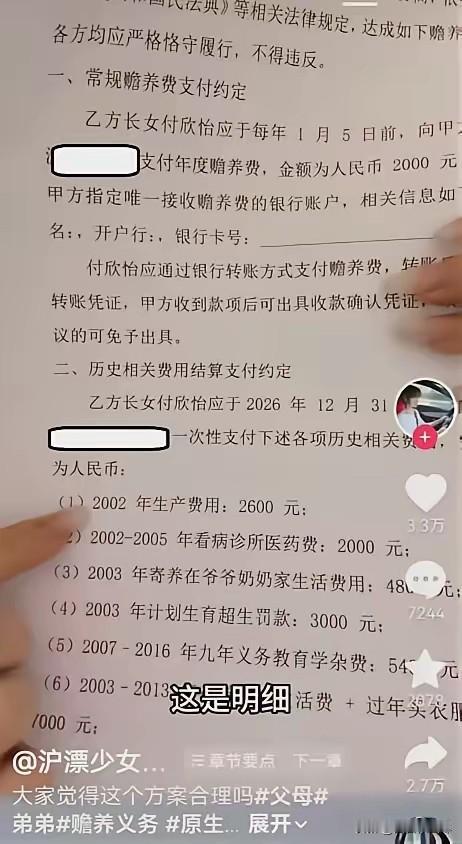 民法典》等相关法律规定，达成如下赡养
各方均应严格恪守履行，不得违反。
一、常规赡养费支付约定
乙方长女付欣怡应于每年 1 月 5 日前，向甲
支付年度赡养费，金额为人民币 2000 元
甲方指定唯一接收赡养费的银行账户，相关信息如
名：，开户行：，银行卡号：
付欣怡应通过银行转账方式支付赡养费，转账
转账凭证，甲方收到款项后可出具收款确认凭证，
议的可免予出具。
二、历史相关费用结算支付约定
乙方长女付欣怡应于 2026 年 12 月 31
一次性支付下述各项历史相关费
为人民币：
（1）2002 年生产费用：2600 元；
2）2002-2005 年看病诊所医药费：2000 元；
（3）2003 年寄养在爷爷奶奶家生活费用：480 元；
（4）2003 年计划生育超生罚款：3000 元；
（5）2007-2016 年九年义务教育学杂费：54 元
（6）2003-2013 活费 + 过年买衣服
7000 元；
这是明细
3.3万
7244
2078
2.7万
@沪漂少女...
章节要点 下一章
大家觉得这个方案合理吗#父母#
弟弟#赡养义务 #原生... 展开